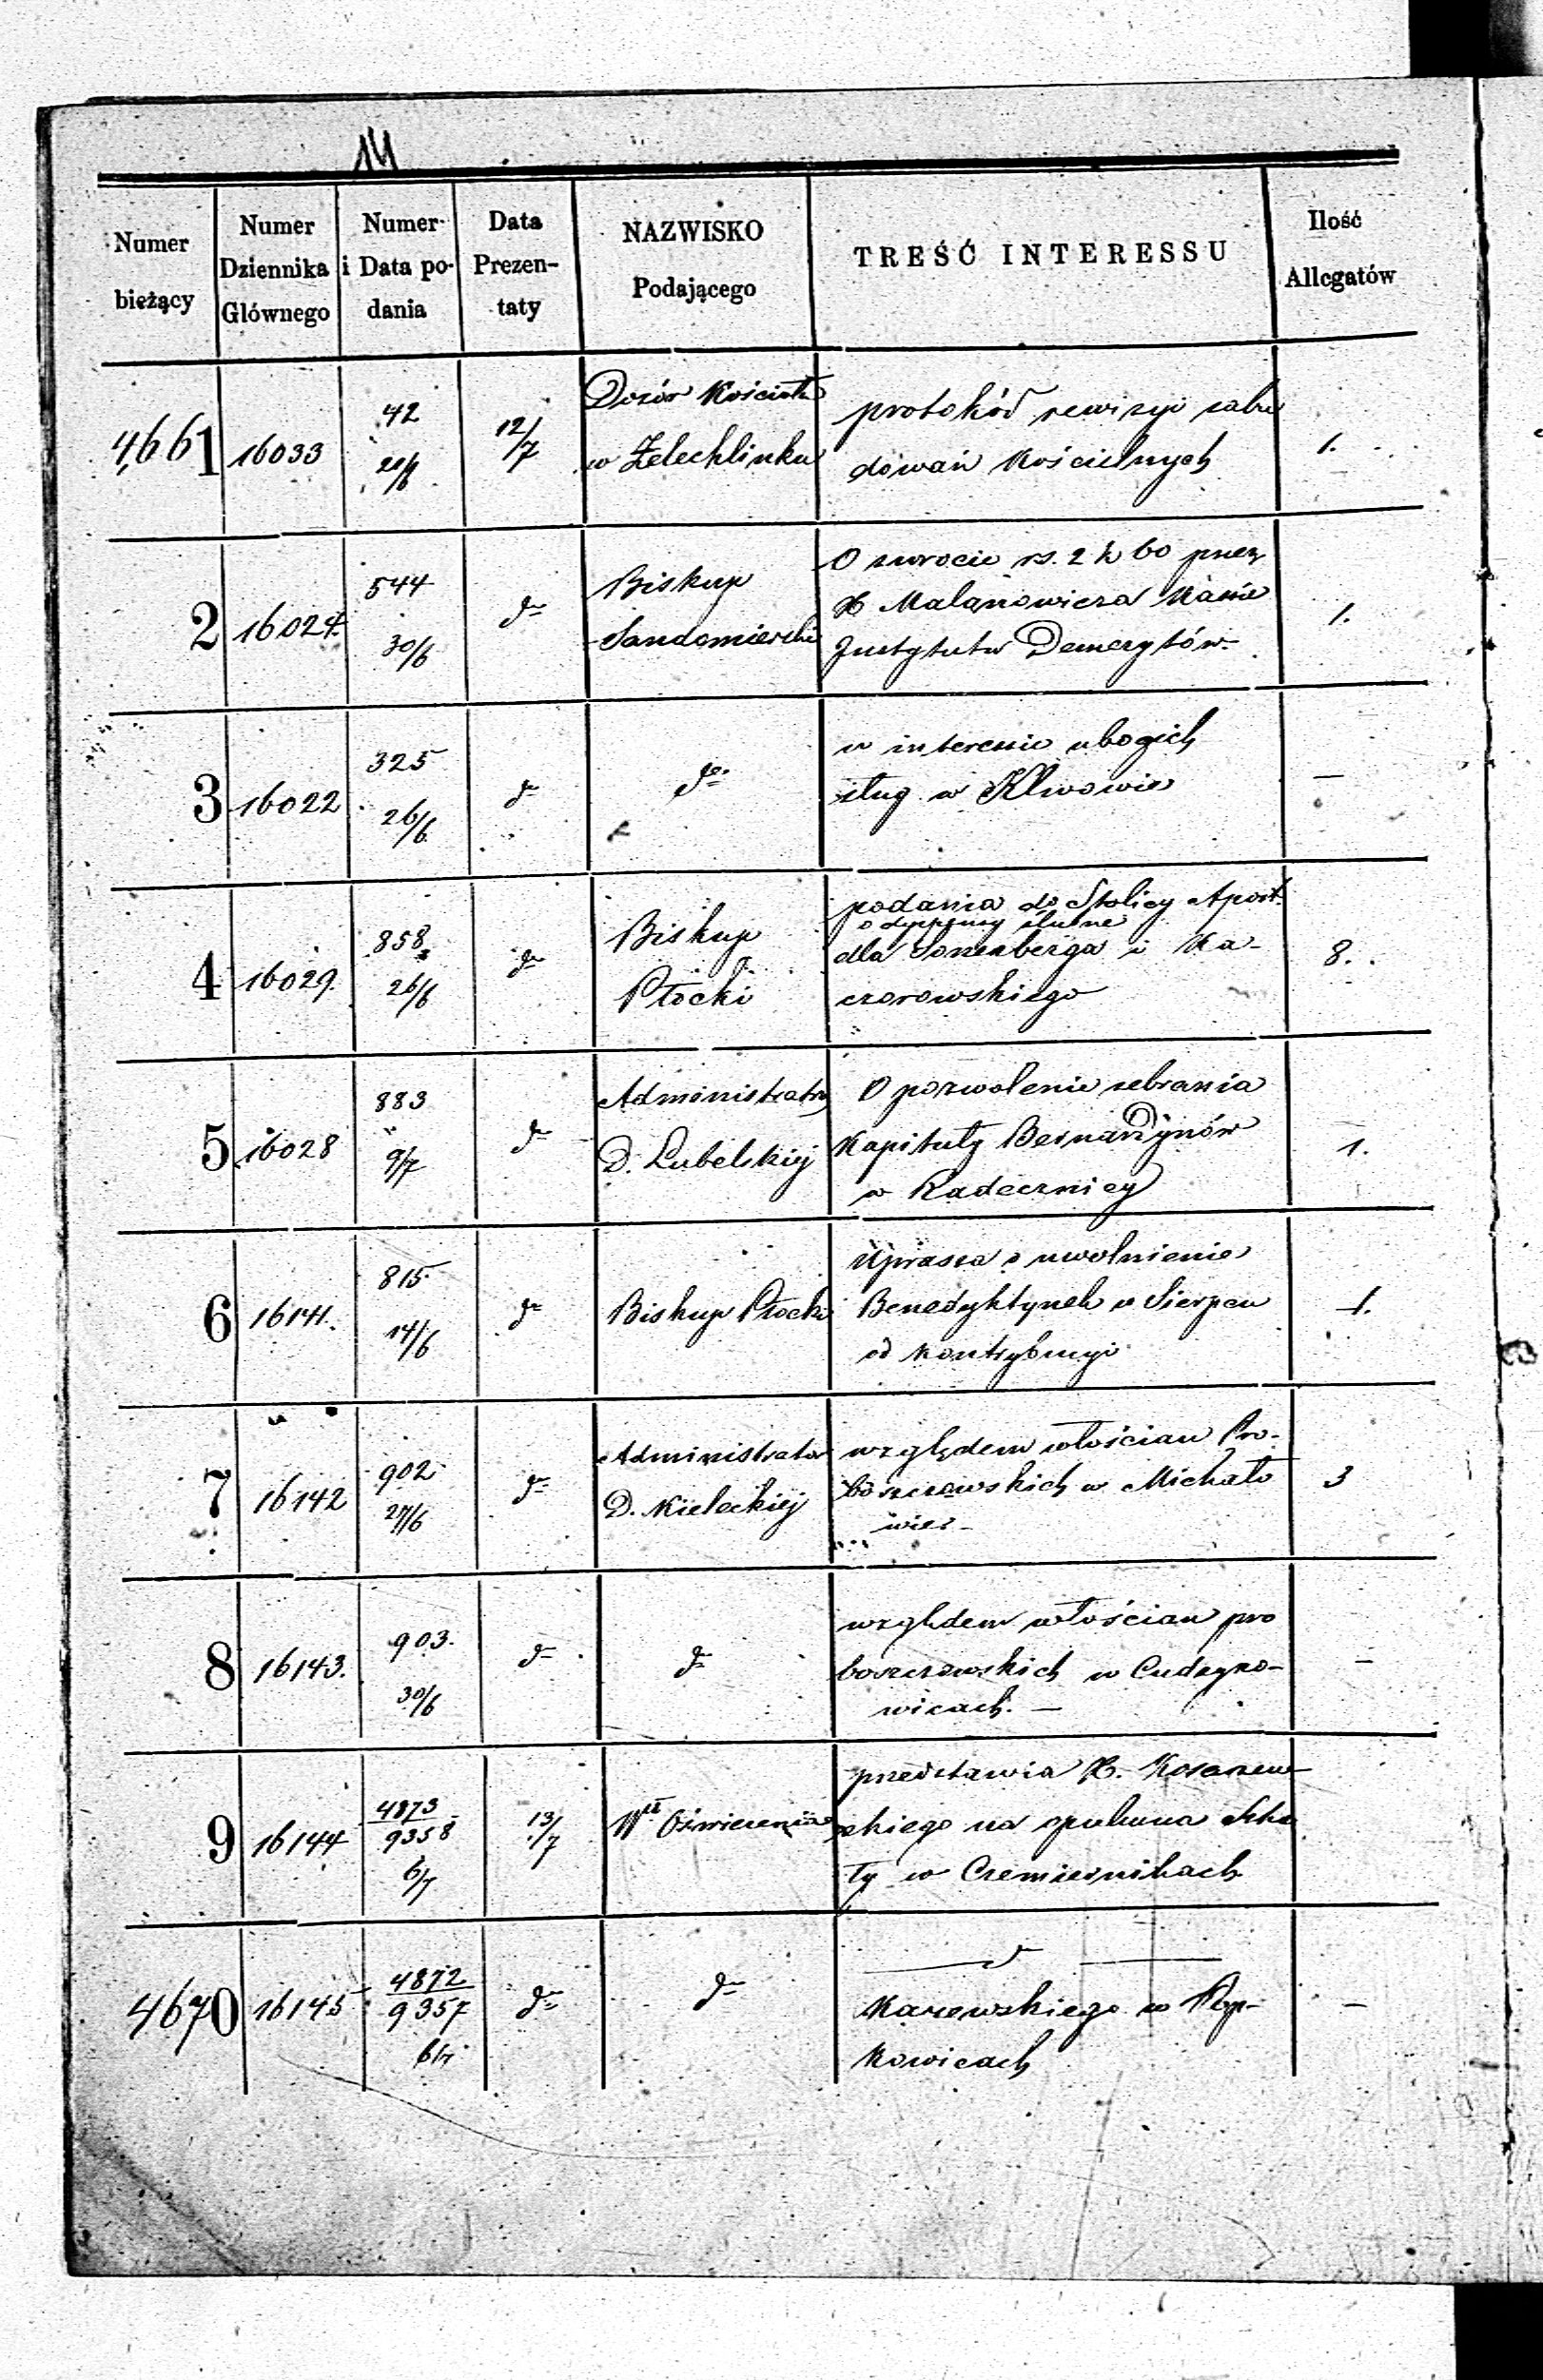 14
Numer bieżący | Numer Dziennika Głównego | Numer i Data podania | Data Prezentaty | NAZWISKO Podającego | TREŚĆ INTERESSU | Ilość Allegatów
4,661 | 16033 | 42 | 12/7 | Dozór Kościoła | protokół rewizyi zabu
w Żelechlinku | dowań Kościelnych | 1.
2 | 16024. | 544 30/6 | do | Biskup | O zwrocie rs. 2 k 60 przez
Sandomierski | X Malanowicza Kassie | 1.
Instytutu Demerytów
3 | 16022 | 325 26/6 | do | do | w interessie ubogich
sług w Klwowie | —
4 | 16029. | 858 26/6 | do | Biskup | podania do Stolicy Apost.
o dyspensy ślubne
Płocki | dla Sonenberga i Ka- | 8.
czorowskiego
5 | 16028 | 883 9/7 | do | Administrator | O pozwolenie zebrania
D. Lubelskiej | Kapituły Bernardynów | 1.
w Radecznicy
6 | 16141. | 815 14/6 | do | Biskup Płocki | Uprasza o uwolnienie
Benedyktynek w Sierpcu | 1.
od kontrybucyi
7 | 16142 | 902 27/6 | do | Administrator | względem włościan Pro-
D. Kieleckiej | boszczowskich w Michało | 3
wice
8 | 16143. | 903. 30/6 | do | do | względem włościan pro
boszczowskich w Cudzyno- | —
wicach. —
9 | 16144 | 4873 9358 6/7 | 13/7 | Wł Oświecenia | przedstawia X.
skiego na opiekuna Szko
ły w Czemiernikach
4670 | 16145 | 4872 9357 6/7 | do | do | — d —
Karewskiego w | —
kowicach